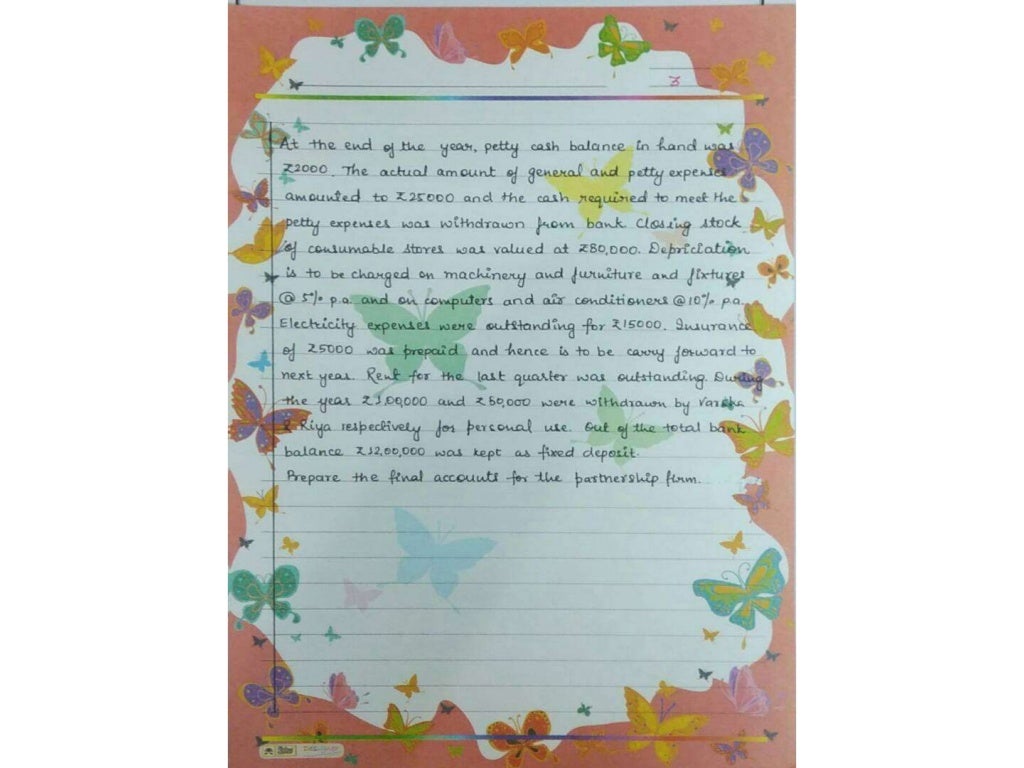 3
At the end of the year, petty cash balance in hand was
₹2000. The actual amount of general and petty expenses
amounted to ₹25000 and the cash required to meet the
petty expenses was withdrawn from bank. Closing stock
of consumable stores was valued at ₹80,000. Depriciation
is to be charged on machinery and furniture and fixtures
@ 5% p.a. and on computers and air conditioners @ 10% p.a.
Electricity expenses were outstanding for ₹15000. Insurance
of ₹5000 was prepaid and hence is to be carry forward to
next year. Rent for the last quarter was outstanding. During
the year ₹3,00,000 and ₹60,000 were withdrawn by Varsha
& Riya respectively for personal use. Out of the total bank
balance ₹12,00,000 was kept as fixed deposit.
Prepare the final accounts for the partnership firm.